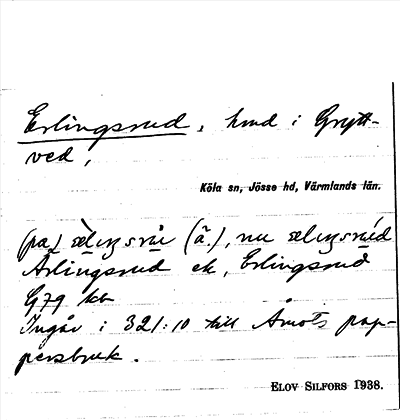 Erlingsrud, hmd i Grytt-
ved,
Köla sn, Jösse hd, Värmlands län.
(pa) ælıŋsrù (ä.), nu ælıŋsrúd
Ärlingsrud ek, Erlingsrud
G79 kb
Ingår i 321:10 till Åmots pap-
persbruk.
ELOV SILFORS 1938.